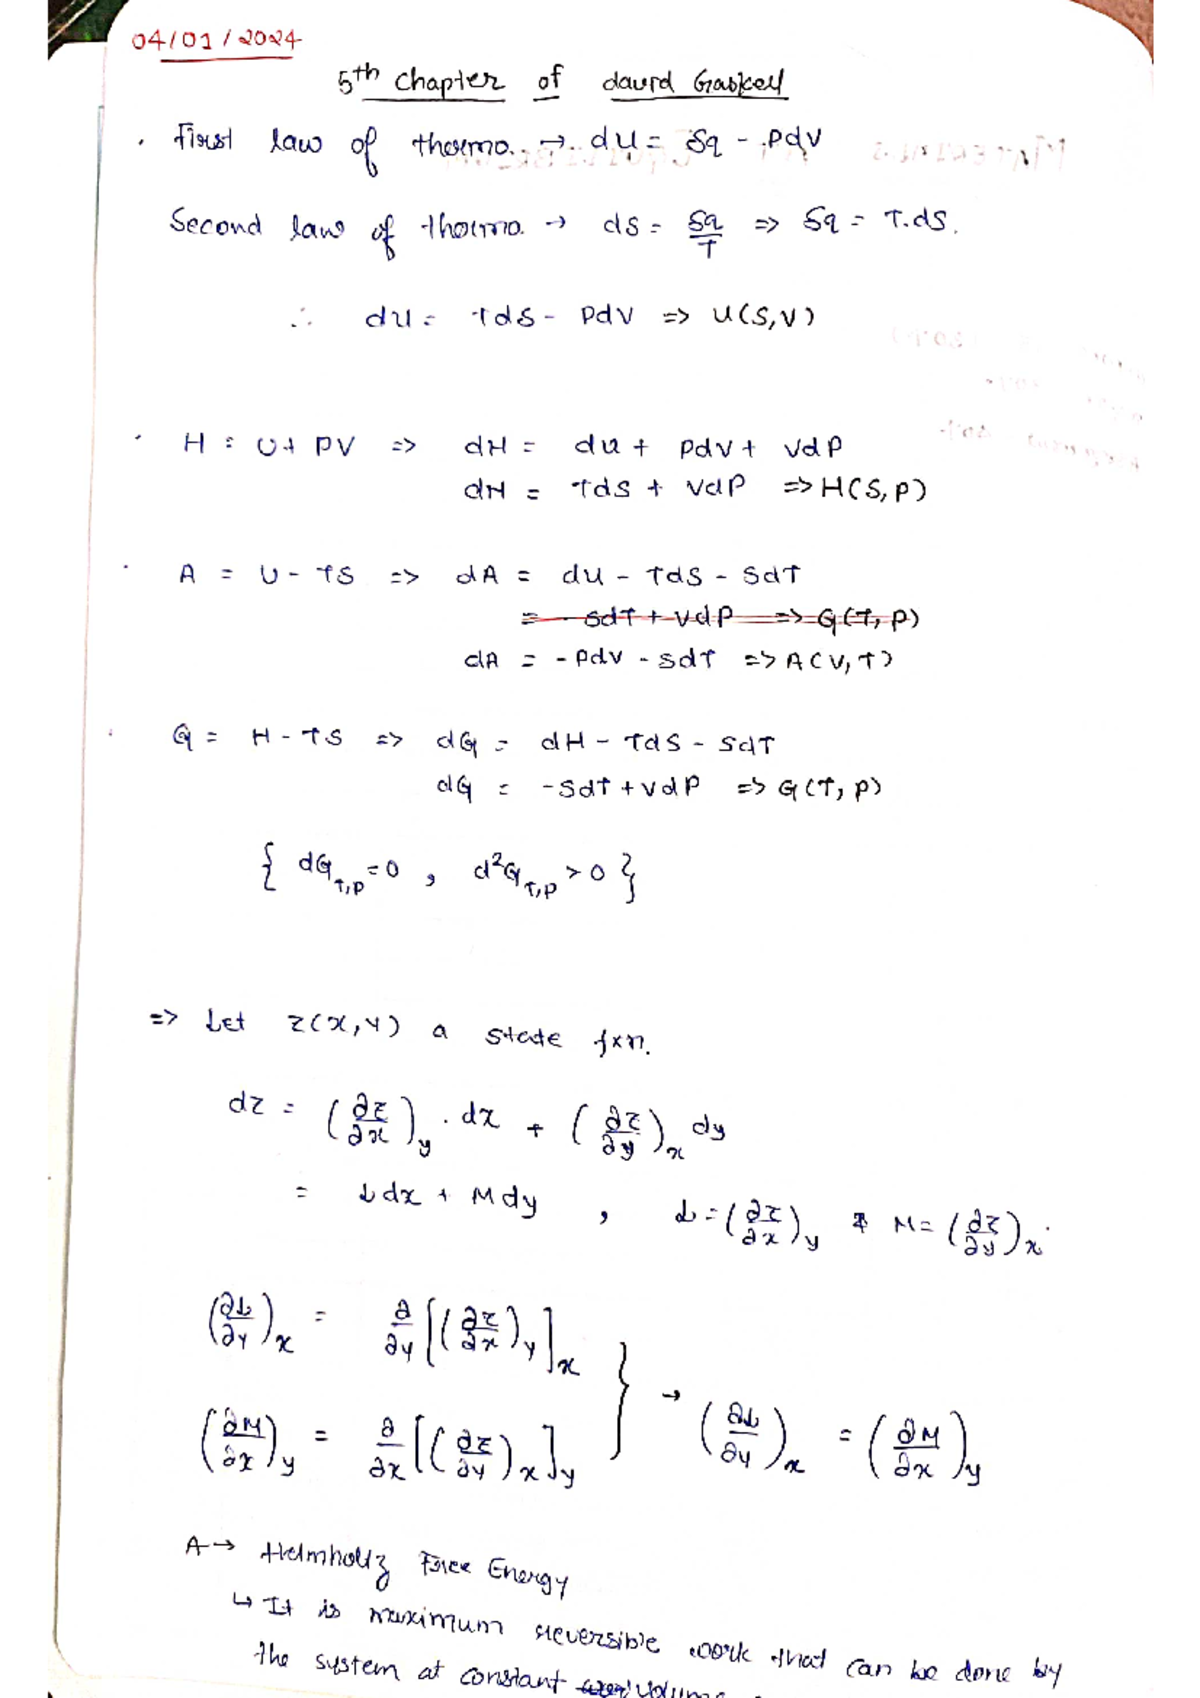 04/01/2024
5th chapter of david Gaskell
. First law of thermo. → dU = δq - PdV
Second law of thermo. → dS = δq/T ⇒ δq = T.dS.
∴ dU = TdS - PdV ⇒ U(S,V)
· H = U + PV ⇒ dH = dU + PdV + VdP
dH = TdS + VdP ⇒ H(S,P)
· A = U - TS ⇒ dA = dU - TdS - SdT
= - SdT + VdP ⇒ G(T,P)
dA = - PdV - SdT ⇒ A(V,T)
· G = H - TS ⇒ dG = dH - TdS - SdT
dG = -SdT + VdP ⇒ G(T,P)
{ dG_T,P = 0 , d²G_T,P > 0 }
⇒ Let z(x,y) a state fxn.
dz = (∂z/∂x)_y . dx + (∂z/∂y)_x dy
= Ldx + Mdy , L = (∂z/∂x)_y & M = (∂z/∂y)_x.
(∂L/∂y)_x = ∂/∂y [(∂z/∂x)_y]_x
(∂M/∂x)_y = ∂/∂x [(∂z/∂y)_x]_y } → (∂L/∂y)_x = (∂M/∂x)_y
A → Helmholtz Free Energy
↳ It is maximum reversible work that can be done by
the system at constant volume